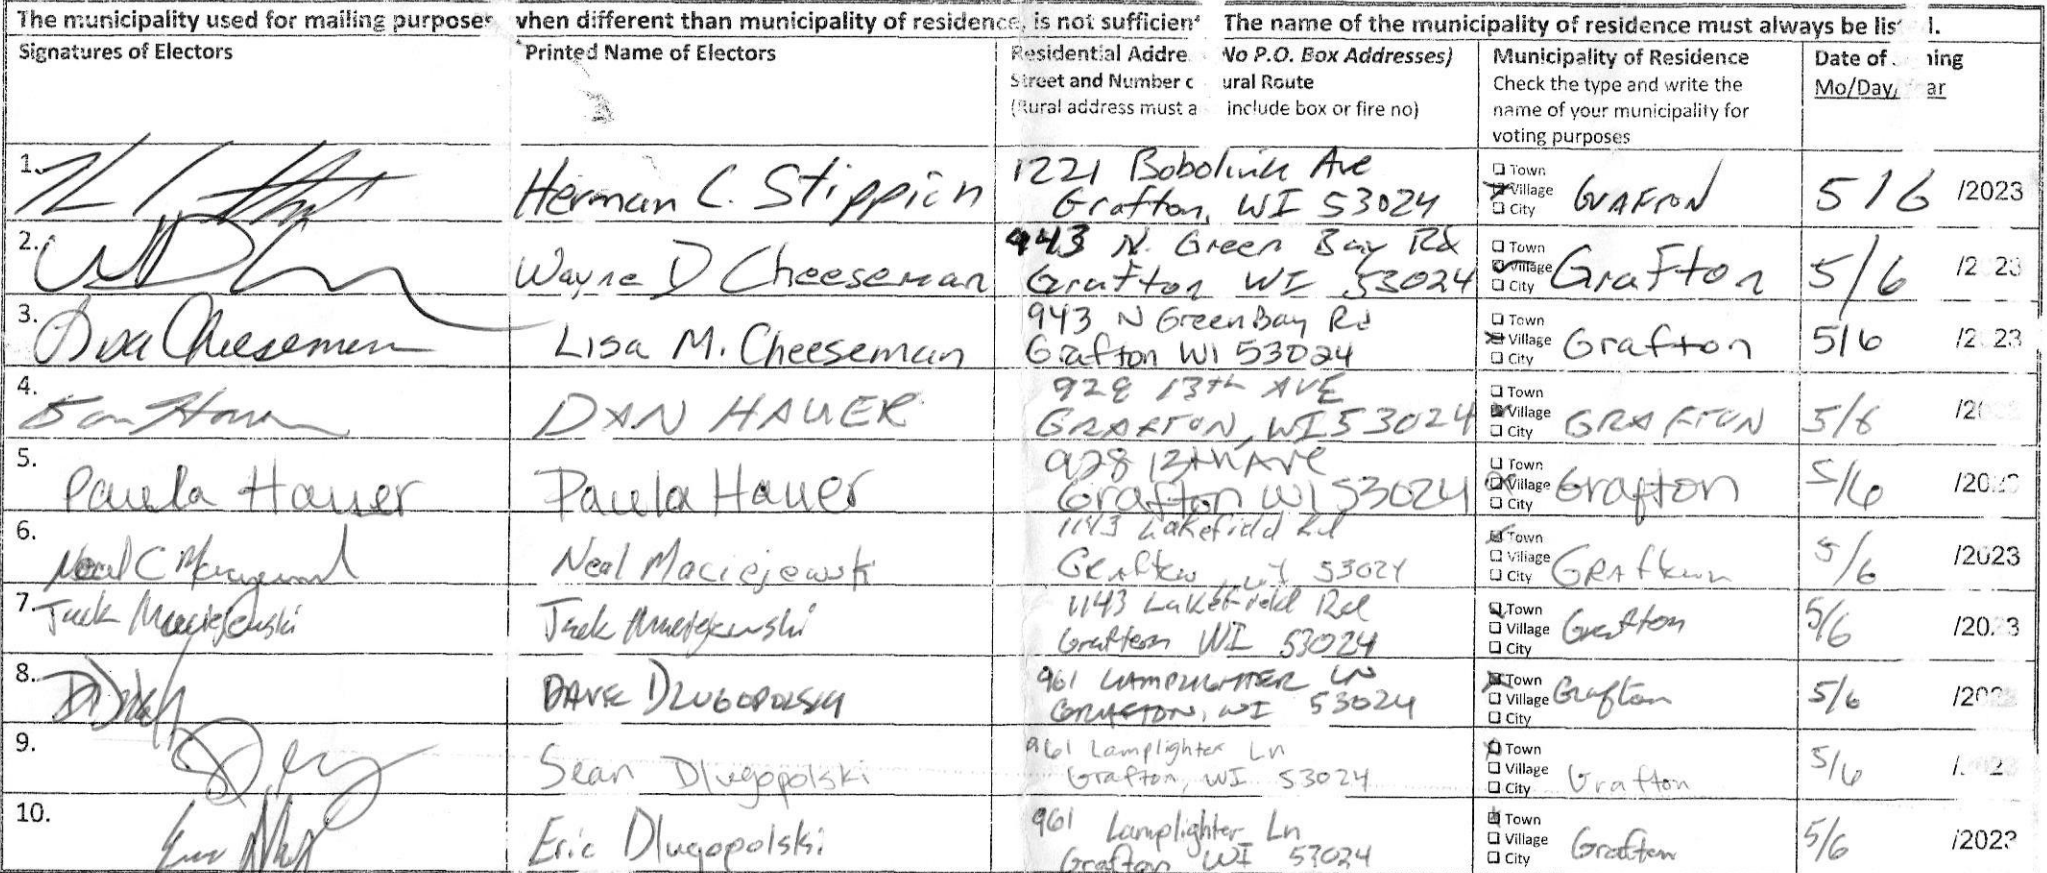 The municipality used for mailing purposes, when different than municipality of residence, is not sufficient The name of the municipality of residence must always be lis
Signatures of Electors
Printed Name of Electors
Residential Addre No P.O. Box Addresses)
Street and Number o ural Route
(Rural address must a include box or fire no)
Municipality of Residence
Check the type and write the
name of your municipality for
voting purposes
Date of ning
Mo/Day/ ar
1. Herman C. Stippich
1221 Bobolink Ave
Grafton, WI 53024
Town
Village
City
GRAFTON
5/6 /2023
2. Wayne D Cheeseman
943 N. Green Bay Rd
Grafton WI 53024
Town
Village
City
Grafton
5/6 /2 23
3. Lisa Cheeseman
Lisa M. Cheeseman
943 N Green Bay Rd
Grafton WI 53024
Town
Village
City
Grafton
5/6 /2 23
4. Dan Hauer
DAN HAUER
928 13th AVE
GRAFTON, WI 53024
Town
Village
City
GRAFTON
5/6 /20
5. Paula Hauer
Paula Hauer
928 13th Ave
Grafton WI 53024
Town
Village
City
Grafton
5/6 /20
6. Neal C
Neal Maciejewski
1143 Lakefield Rd
Grafton, WI 53024
Town
Village
City
Grafton
5/6 /2023
7. Jack Maciejewski
Jack Maciejewski
1143 Lakefield Rd
Grafton WI 53024
Town
Village
City
Grafton
5/6 /20 3
8. DAVE DLUGOPOLSKI
961 LAMPLIGHTER LN
GRAFTON, WI 53024
Town
Village
City
Grafton
5/6 /202
9. Sean Dlugopolski
961 Lamplighter Ln
Grafton, WI 53024
Town
Village
City
Grafton
5/6 / 2
10. Eric Dlugopolski
961 Lamplighter Ln
Grafton WI 53024
Town
Village
City
Grafton
5/6 /2023